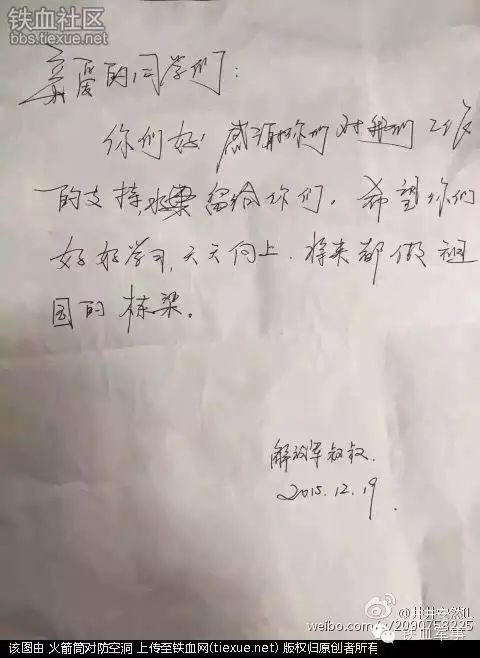 铁血社区
bbs.tiexue.net
亲爱的同学们:
你们好!感谢你们对我们工作
的支持,水果留给你们。希望你们
好好学习,天天向上。将来都做祖
国的栋梁。
解放军叔叔.
2015.12.19.
@井井安然IL
weibo.com/u/2090753225
铁血军事
该图由 火箭筒对防空洞 上传至铁血网(tiexue.net) 版权归原创者所有